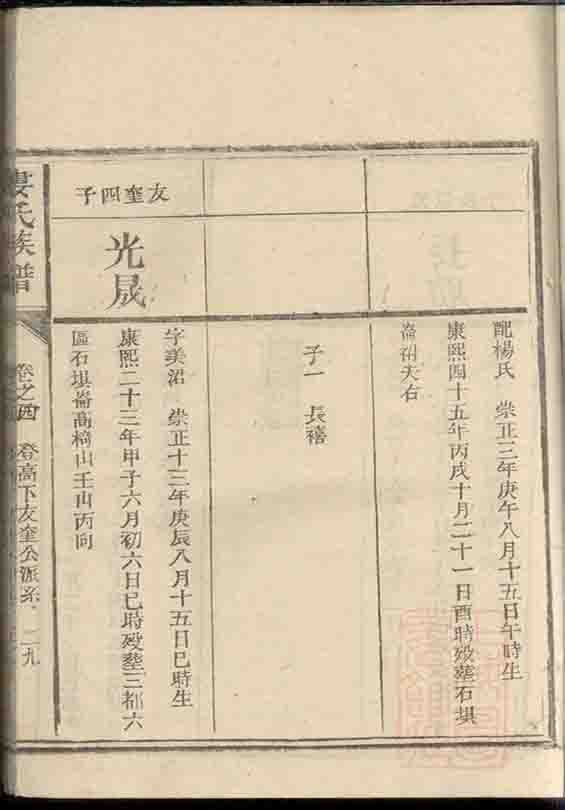 配楊氏 崇正三年庚午八月十五日午時生
康熙四十五年丙戌十月二十一日酉時歿塟石垻
崙祔夫右
子一 長禧
友奎四子
光晟
字美沼 崇正十三年庚辰八月十五日巳時生
康熙二十三年甲子六月初六日巳時歿塟三都六
區石垻崙高橋山壬山丙向
婁氏族譜
卷之四 登高下友奎公派系 二九